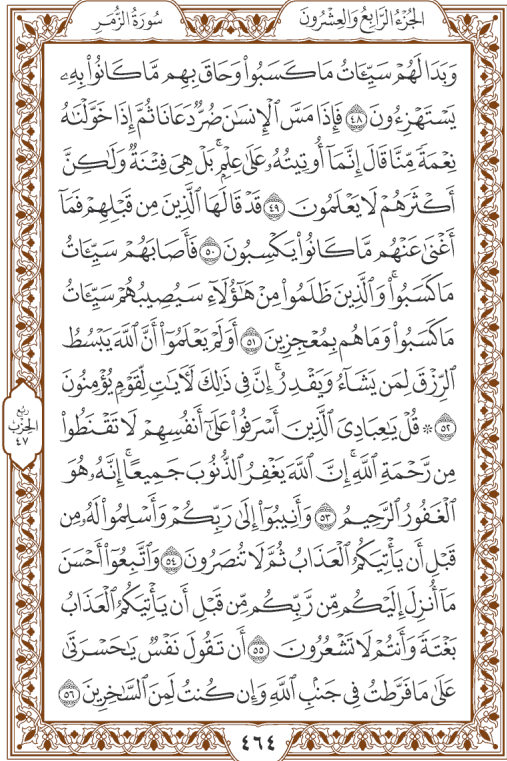 الجزء الرابع والعشرون
سورة الزمر
وَبَدَا لَهُمْ سَيِّـَٔاتُ مَا كَسَبُوا۟ وَحَاقَ بِهِم مَّا كَانُوا۟ بِهِۦ
يَسْتَهْزِءُونَ ٤٨ فَإِذَا مَسَّ ٱلْإِنسَٰنَ ضُرٌّ دَعَانَا ثُمَّ إِذَا خَوَّلْنَٰهُ
نِعْمَةً مِّنَّا قَالَ إِنَّمَآ أُوتِيتُهُۥ عَلَىٰ عِلْمٍۭ ۚ بَلْ هِىَ فِتْنَةٌ وَلَٰكِنَّ
أَكْثَرَهُمْ لَا يَعْلَمُونَ ٤٩ قَدْ قَالَهَا ٱلَّذِينَ مِن قَبْلِهِمْ فَمَآ
أَغْنَىٰ عَنْهُم مَّا كَانُوا۟ يَكْسِبُونَ ٥٠ فَأَصَابَهُمْ سَيِّـَٔاتُ
مَا كَسَبُوا۟ ۚ وَٱلَّذِينَ ظَلَمُوا۟ مِنْ هَٰٓؤُلَآءِ سَيُصِيبُهُمْ سَيِّـَٔاتُ
مَا كَسَبُوا۟ وَمَا هُم بِمُعْجِزِينَ ٥١ أَوَلَمْ يَعْلَمُوٓا۟ أَنَّ ٱللَّهَ يَبْسُطُ
ٱلرِّزْقَ لِمَن يَشَآءُ وَيَقْدِرُ ۚ إِنَّ فِى ذَٰلِكَ لَءَايَٰتٍ لِّقَوْمٍ يُؤْمِنُونَ
٥٢ ۞ قُلْ يَٰعِبَادِىَ ٱلَّذِينَ أَسْرَفُوا۟ عَلَىٰٓ أَنفُسِهِمْ لَا تَقْنَطُوا۟
مِن رَّحْمَةِ ٱللَّهِ ۚ إِنَّ ٱللَّهَ يَغْفِرُ ٱلذُّنُوبَ جَمِيعًا ۚ إِنَّهُۥ هُوَ
ٱلْغَفُورُ ٱلرَّحِيمُ ٥٣ وَأَنِيبُوٓا۟ إِلَىٰ رَبِّكُمْ وَأَسْلِمُوا۟ لَهُۥ مِن
قَبْلِ أَن يَأْتِيَكُمُ ٱلْعَذَابُ ثُمَّ لَا تُنصَرُونَ ٥٤ وَٱتَّبِعُوٓا۟ أَحْسَنَ
مَآ أُنزِلَ إِلَيْكُم مِّن رَّبِّكُم مِّن قَبْلِ أَن يَأْتِيَكُمُ ٱلْعَذَابُ
بَغْتَةً وَأَنتُمْ لَا تَشْعُرُونَ ٥٥ أَن تَقُولَ نَفْسٌ يَٰحَسْرَتَىٰ
عَلَىٰ مَا فَرَّطتُ فِى جَنۢبِ ٱللَّهِ وَإِن كُنتُ لَمِنَ ٱلسَّٰخِرِينَ ٥٦
ربع
الحزب
٤٧
٤٦٤